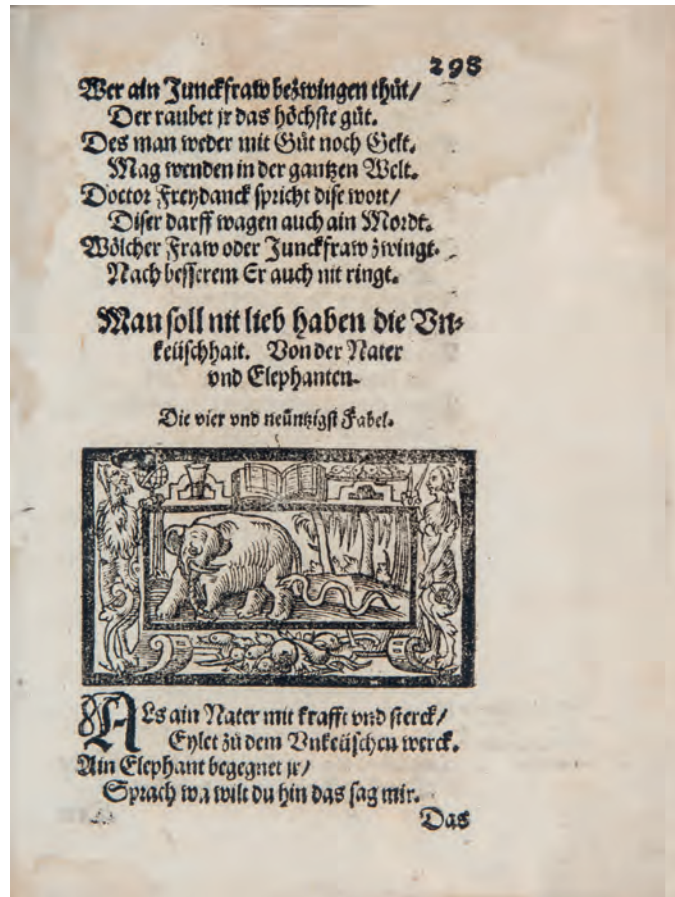 298
Wer ain Junckfraw bezwingen thůt/
Der raubet jr das höchste gůt.
Des man weder mit Gůt noch Gelt.
Mag wenden in der gantzen Welt.
Doctor Freydanck spricht dise wort/
Diser darff wagen auch ain Mordt.
Wölcher Fraw oder Junckfraw zwingt.
Nach besserem Er auch nit ringt.
Man soll nit lieb haben die Vn-
keüschhait. Von der Nater
vnd Elephanten.
Die vier vnd neüntzigst Fabel.
ALs ain Nater mit krafft vnd sterck/
Eylet zů dem Vnkeüschen werck.
Ain Elephant begegnet jr/
Sprach wa wilt du hin das sag mir.
Das